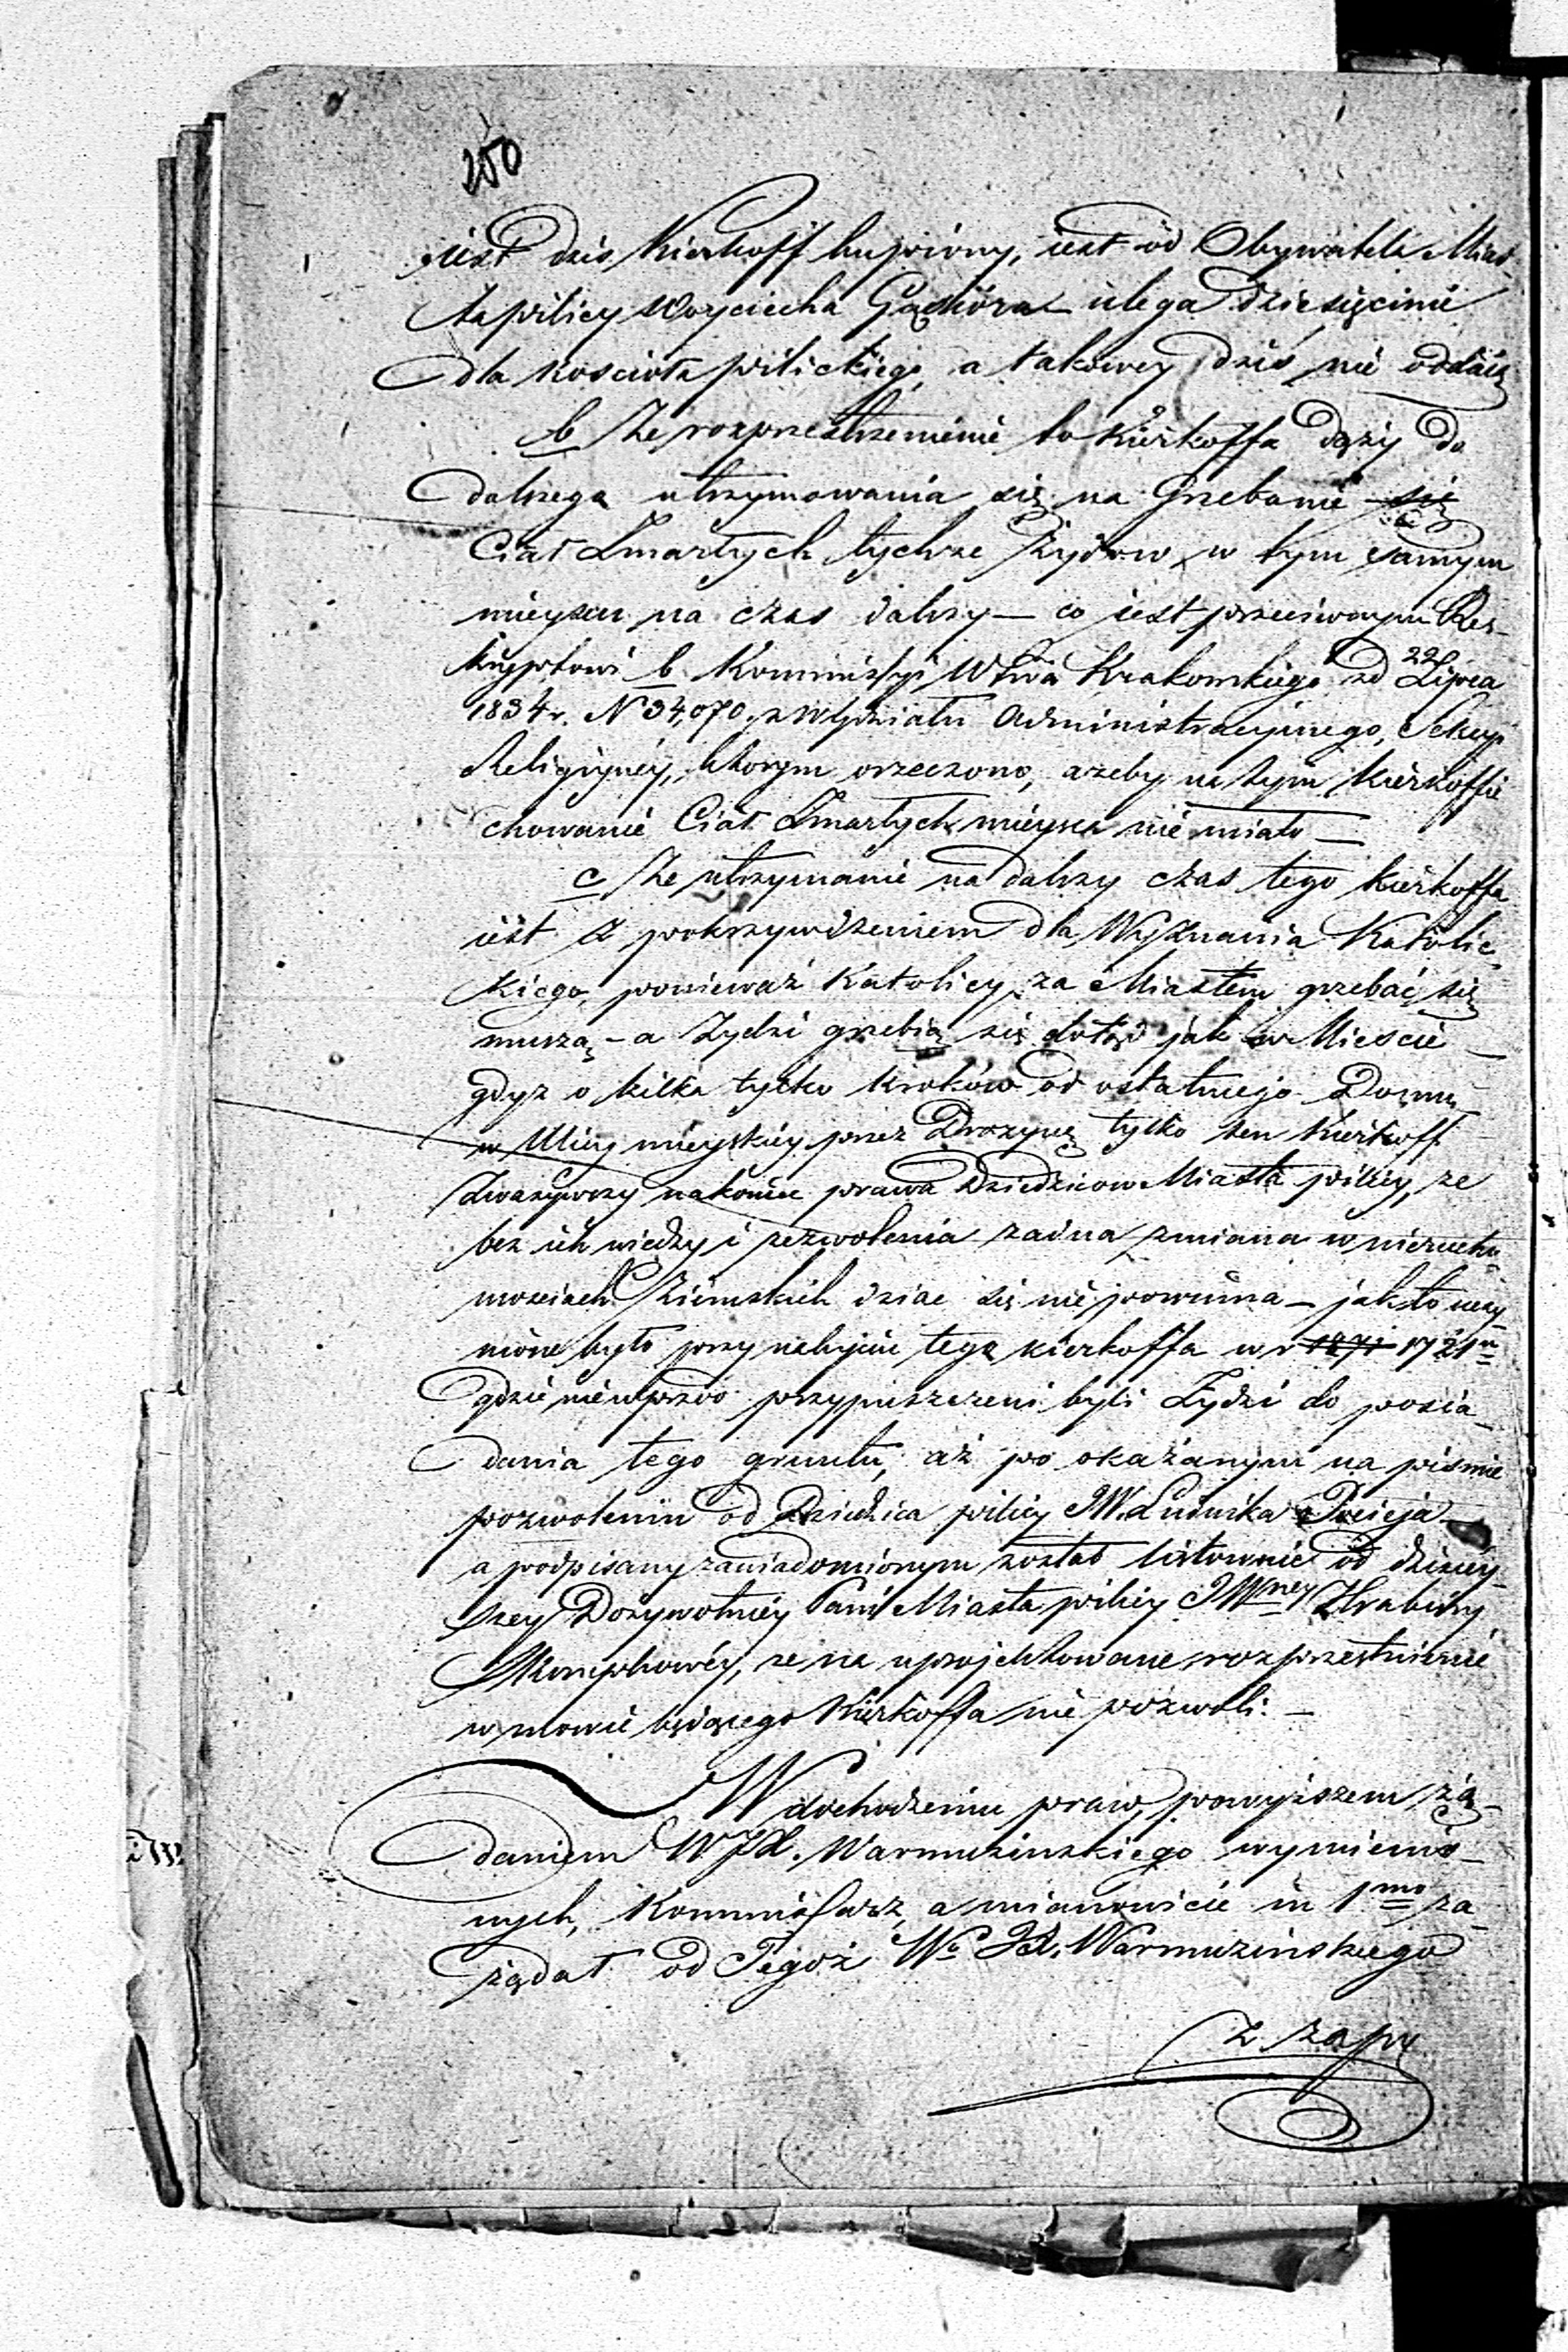 250
iest dziś Kierkoff kupiony, iest od Obywatela Mias-
ta pilicy Woyciecha Gąsiora ulega dziesięcinie
dla kościoła pilickiego, a takowey dziś nie oddaią
b Że rozprzestrzenienie to Kierkoffa dąży do
dalszego utrzymowania się na grzebanie się
Ciał Zmarłych tychże Żydow w tym samym
mieyscu na czas dalszy — co iest przeciwnym Res-
kryptowi b. Kommissyi Wtwa Krakowskiego od 22 Lipca
1834 r. N 34,070. z Wydziału Administracyinego, Sekcyi
Religyiney, ktorym orzeczono, ażeby na tym Kierkoffie
chowanie Ciał Zmarłych mieysca nie miało —
c Że utrzymanie na dalszy czas tego kierkoffa
iest z pokrzywdzeniem dla Wyznania Katolic-
kiego, ponieważ Katolicy za Miastem grzebać się
muszą — a Żydzi grzebią się dotąd jak w Mieście —
gdyż o kilka tylko kroków od ostatniego Domu
w Ulicy mieyskiey przez Drożynę tylko ten Kierkoff
Zważywszy nakoniec prawa Dziedzicow Miasta pilicy, że
bez ich wiedzy i zezwolenia żadna zmiana w nierucho-
mościach Ziemskich dziać się nie powinna — jak to uczy-
nione było przy nabyciu tego kierkoffa w r 1871 1721 m
gdzie nie wprzód przypuszczeni byli Żydzi do posia-
dania tego gruntu, aż po okazanym na piśmie
pozwoleniu od Dziedzica pilicy JW. Ludwika Pocieja —
a podpisany zawiadomionym został listownie od dzisiey-
szey Dożywotniey Pani Miasta pilicy JWney Hrabiny
że na uprojektowane rozprzestrzenienie
w mowie będącego Kierkoffa nie pozwoli. —
W dochodzeniu praw, powyższem żą-
daniem WJX. Warmuzinskiego wymienio-
nych, Kommissarz, a mianowicie in 1mo za-
żądał od Tegoż W. JX. Warmuzińskiego